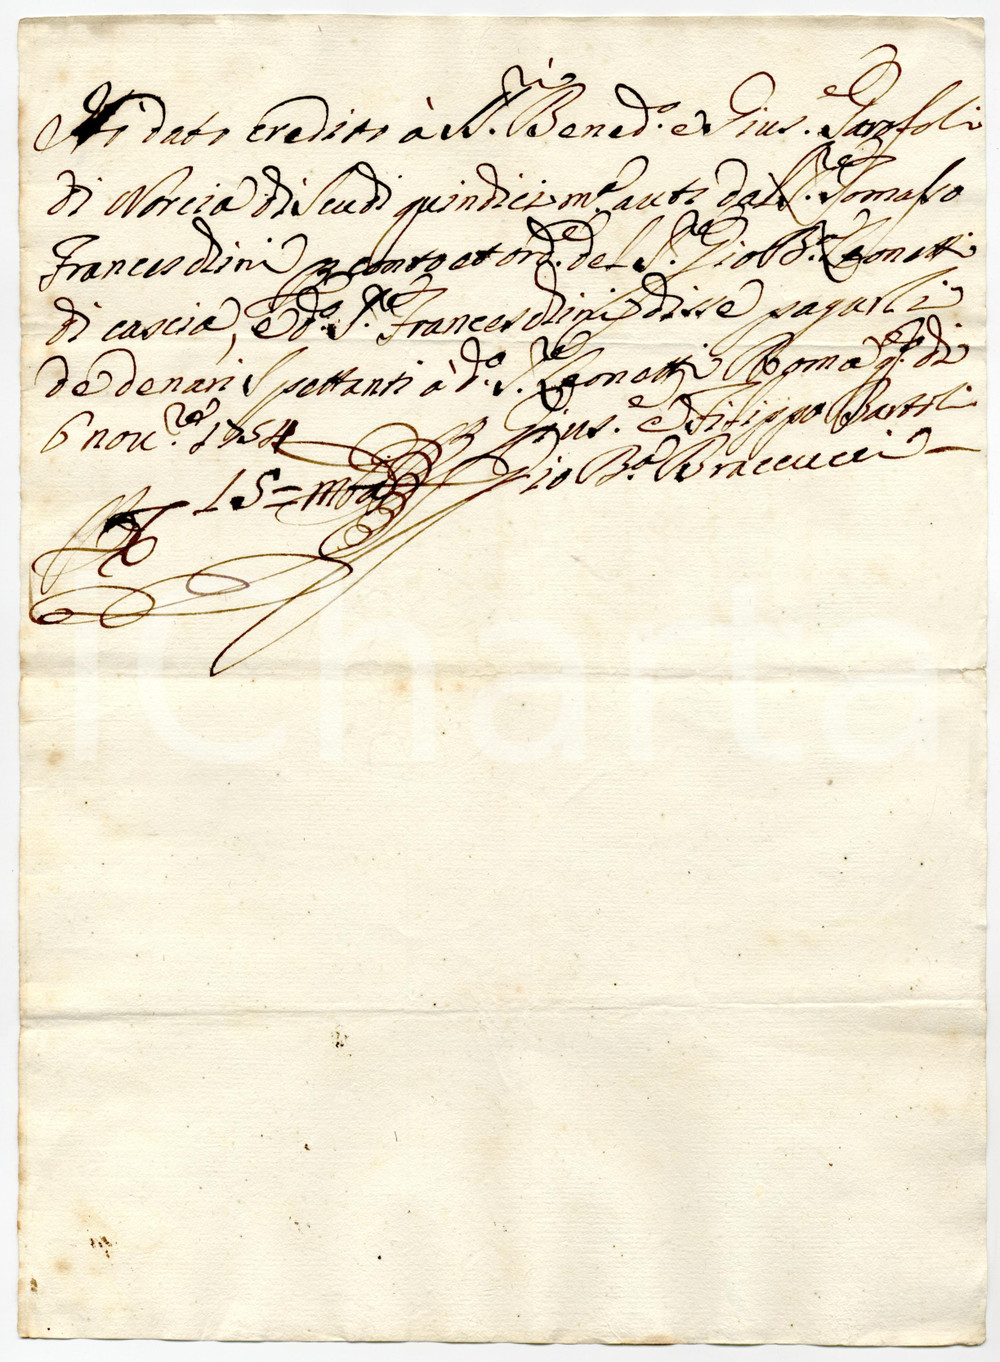 dato credito à SS.ri Bened.o e Gius.e
di Norcia di Scudi quindici m.a auti dal S.re Tomasso
Franceschini p conto et ord.e del S.re Gio B.a Leonetti
di cascia, e d.o S.re Franceschini disse pagarli
de denari Spettanti à d.o S.re Leonetti Roma q.to di
6 nov.re 1754 Gius.e e Filippo Bartoli
15 = m.ta Gio B.a Braccucci
iCharta